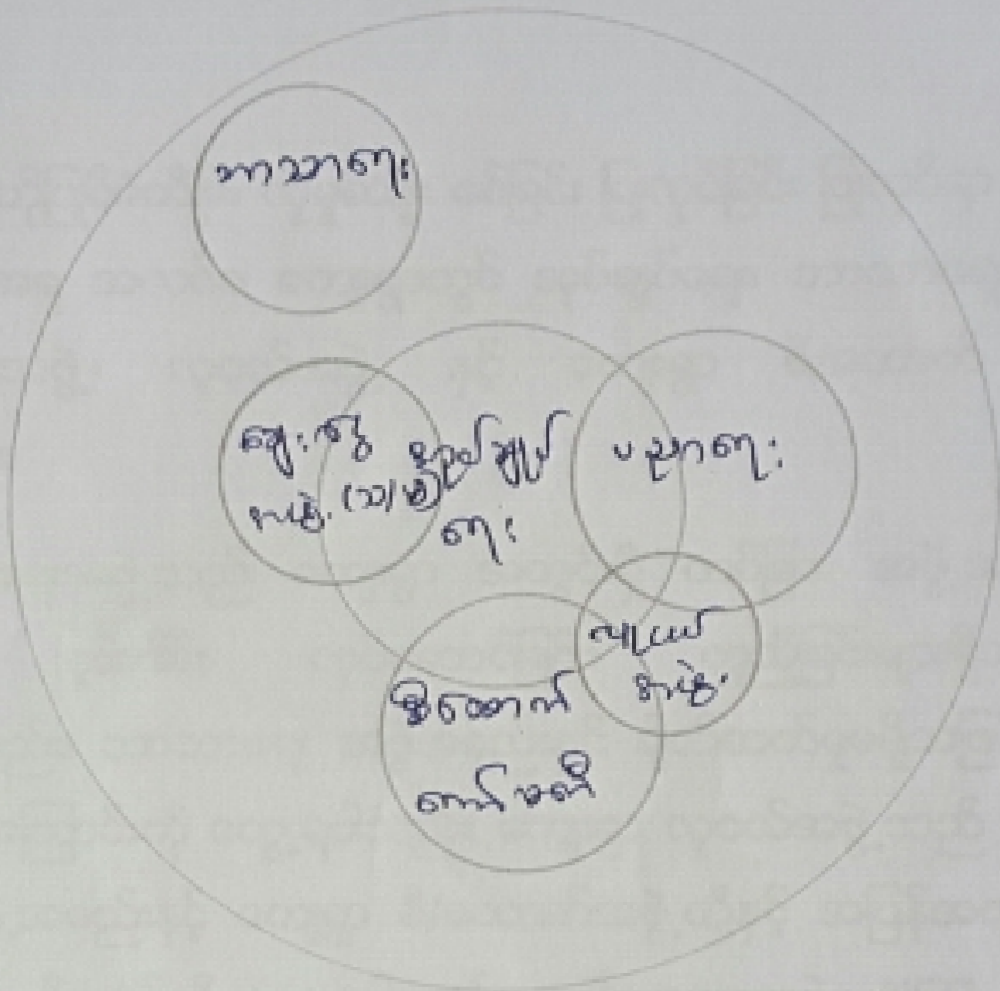 ဘာသာရေး
ချေး၊ငွေ
အဖွဲ့ (သ/မ)
အုပ်ချုပ်
ရေး
ပညာရေး
လူငယ်
အဖွဲ့
မီထောက်
ကော်မတီ